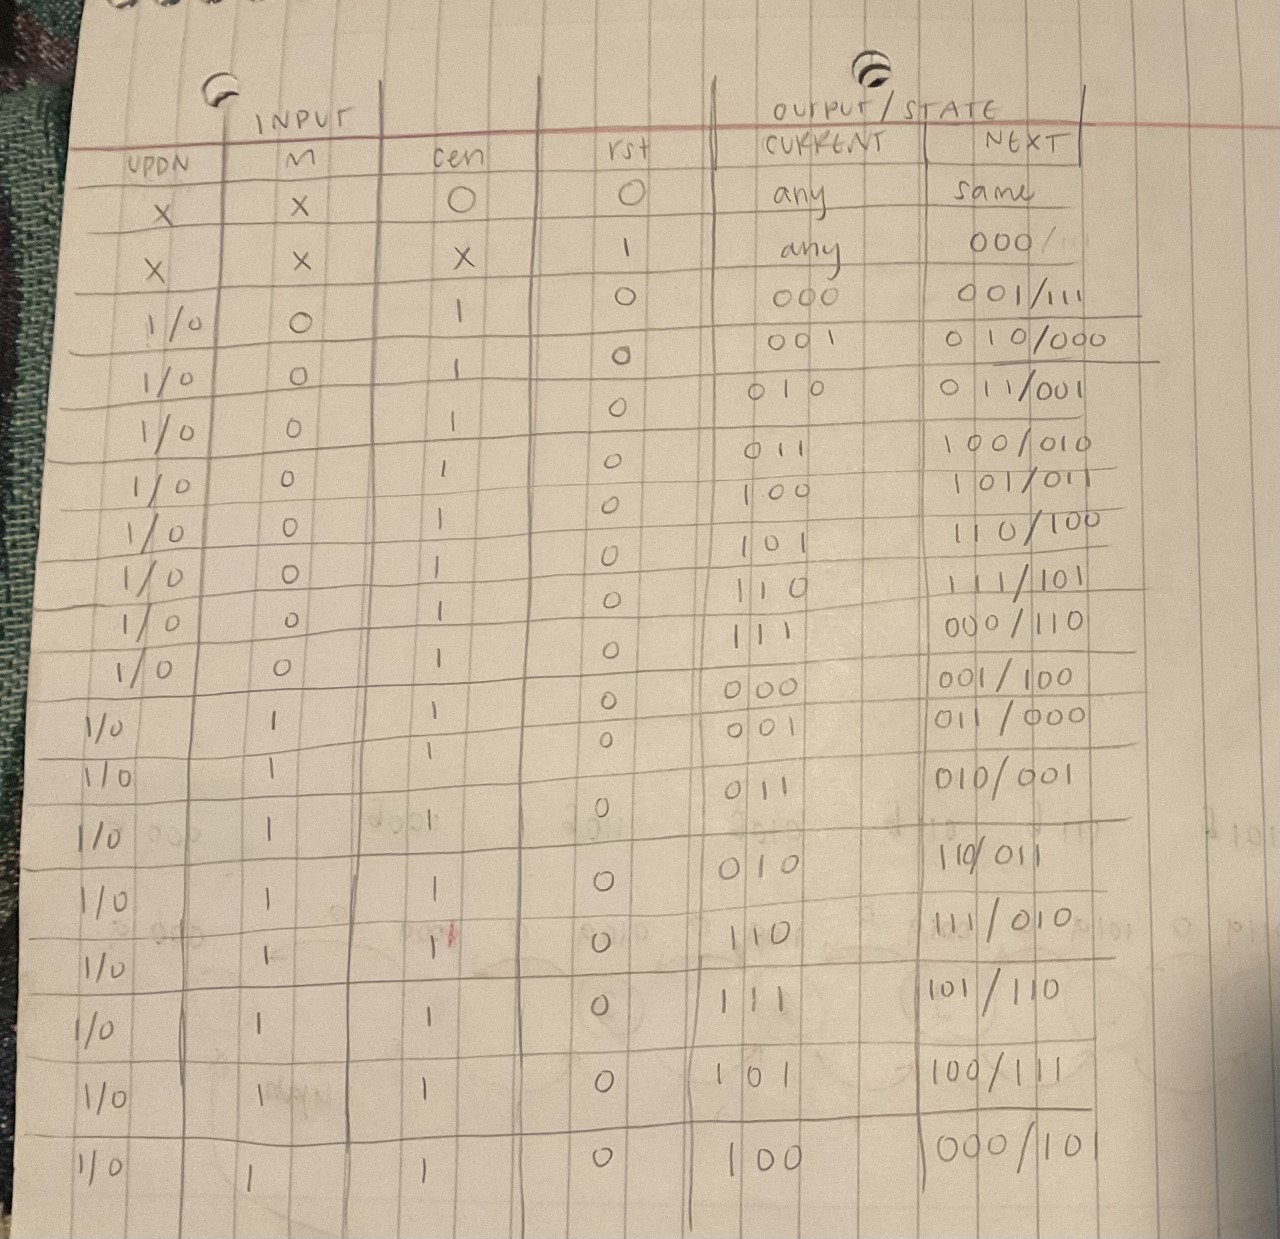 INPUT OUTPUT/STATE
UPDN M cen rst CURRENT NEXT
X X 0 0 any same
X X X 1 any 000/
1/0 0 1 0 000 001/111
1/0 0 1 0 001 010/000
1/0 0 1 0 010 011/001
1/0 0 1 0 011 100/010
1/0 0 1 0 100 101/011
1/0 0 1 0 101 110/100
1/0 0 1 0 110 111/101
1/0 0 1 0 111 000/110
1/0 1 1 0 000 001/100
1/0 1 1 0 001 011/000
1/0 1 1 0 011 010/001
1/0 1 1 0 010 110/011
1/0 1 1 0 110 111/010
1/0 1 1 0 111 101/110
1/0 1 1 0 101 100/111
1/0 1 1 0 100 000/101